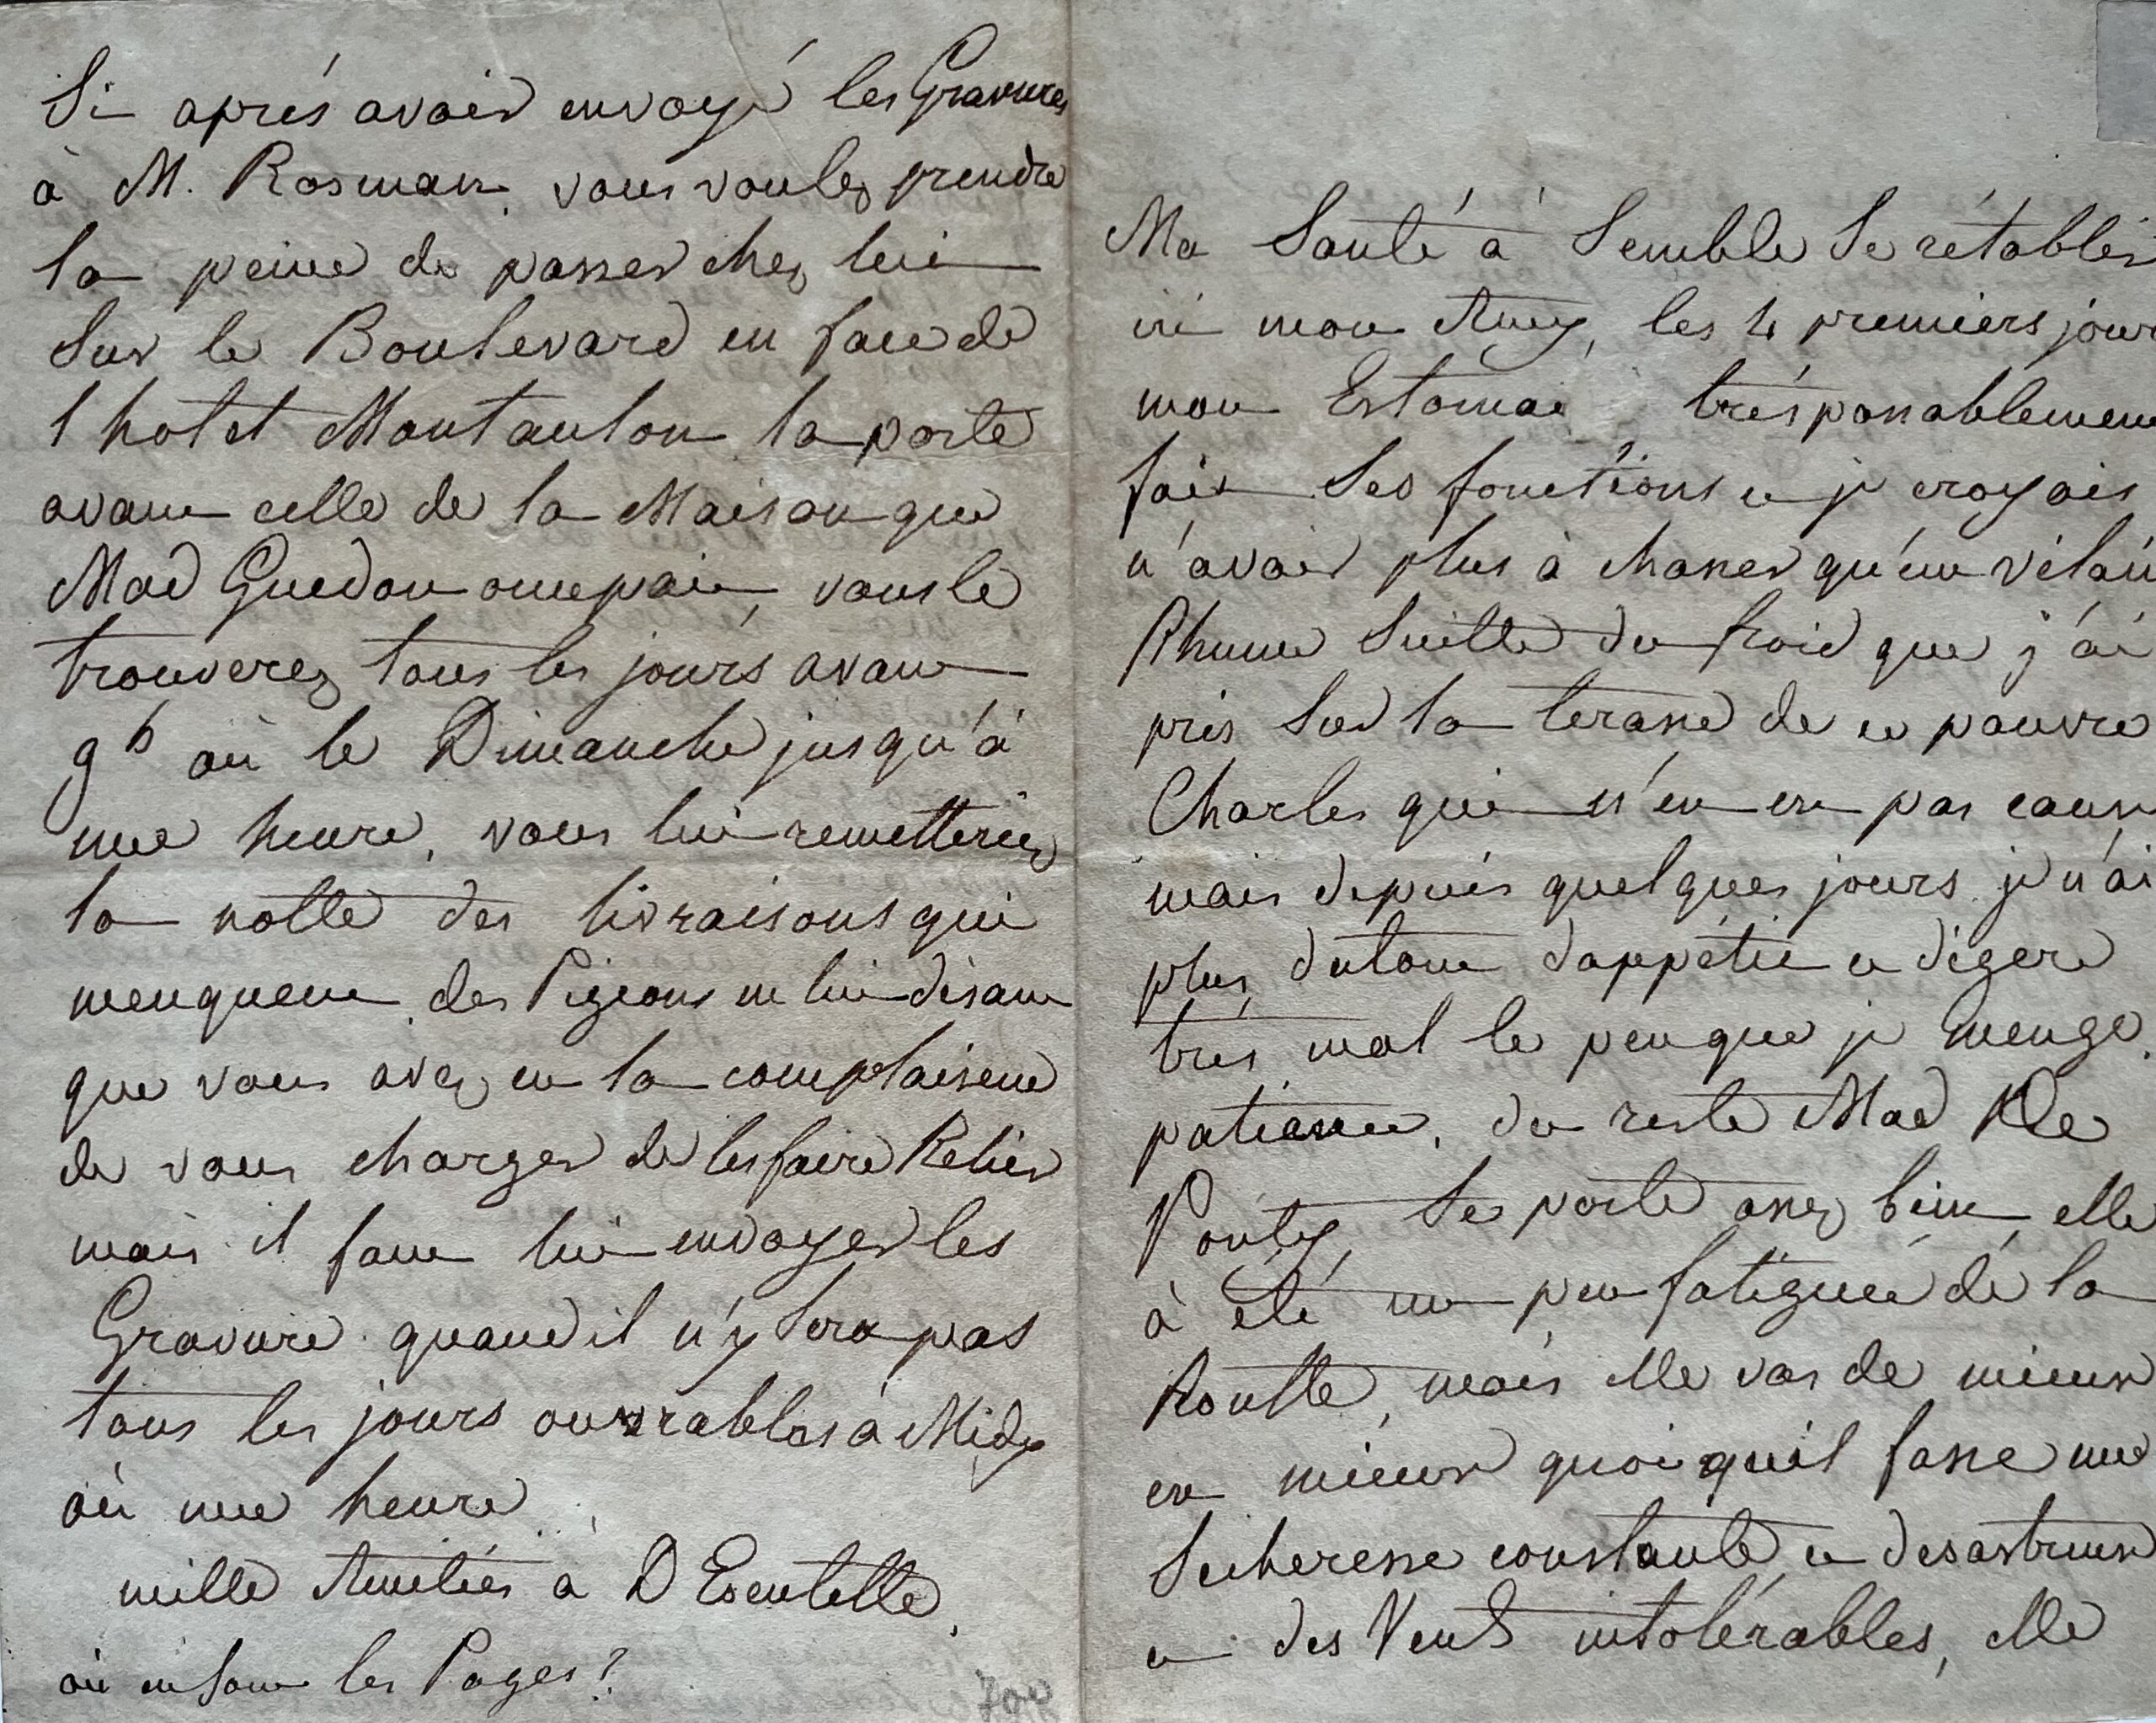 Si après avoir envoyé les Gravures
à M. Rosman vous voulez prendre
la peine de passer chez lui
Sur le Boulevard en face de
l hotel Montaulon la porte
avant celle de la Maison que
Mad Guedon occupait, vous le
trouverez tous les jours avant
9h où le Dimanche jusqu'à
une heure. vous lui remetteriez
la notte des livraisons qui
menquent des Pigeons en lui disant
que vous avez eu la complaisence
de vous charger de les faire Relier
mais il faut lui envoyer les
Gravure quand il n'y Sera pas
tous les jours ouvrables à Midy
où une heure
mille Amitiés à D Escutelle
où en Sont les Pages?
Ma Santé à Semblé Se rétablir
ici mon Amy, les 4 premiers jours
mon Estomac très passablement
fait Ses fonctions et je croyais
n'avoir plus à chasser qu'un vilain
Rhume Suitte du froid que j'ai
pris Sur la terasse de ce pauvre
Charles qui n'en est pas cause
mais depuis quelques jours je n'ai
plus dutout d'appétit et digere
très mal le peu que je menge.
patience. du reste Mad De
Pontÿ Se porte assez bien, elle
à été un peu fatiguée de la
Routte, mais elle vas de mieux
en mieux quoiquil fasse une
Secheresse constante et desastreuse
et des Vents intolérables, elle